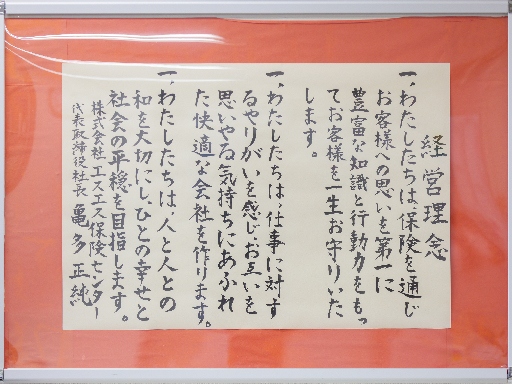 経営理念
一、わたしたちは、保険を通じ
お客様への思いを第一に
豊富な知識と行動力をもっ
てお客様を一生お守りいた
します。
一、わたしたちは、仕事に対す
るやりがいを感じ、お互いを
思いやる気持ちにあふれ
た快適な会社を作ります。
一、わたしたちは、人と人との
和を大切にし、ひとの幸せと
社会の平穏を目指します。
株式会社エスエス保険センター
代表取締役社長 亀多正純